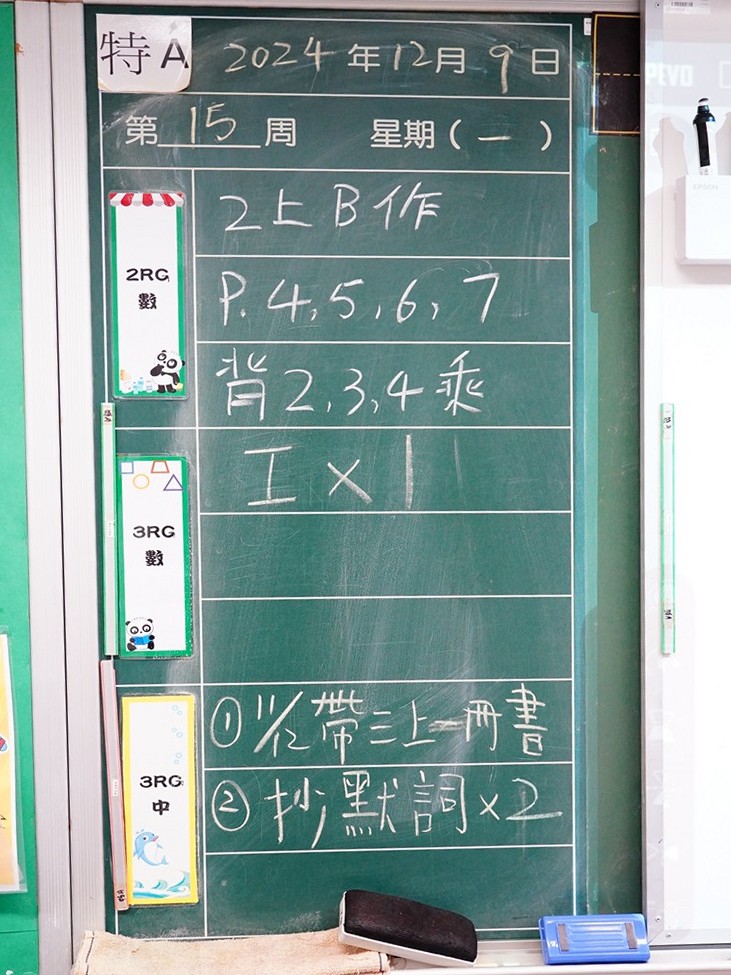 特A 2024年12月9日
第15周 星期(一)
2RG 數
2上B作
P. 4, 5, 6, 7
背2,3,4乘
3RG 數
工 x 1
3RG 中
① 11/12 帶三上二冊書
② 抄默詞 x 2
EPSON